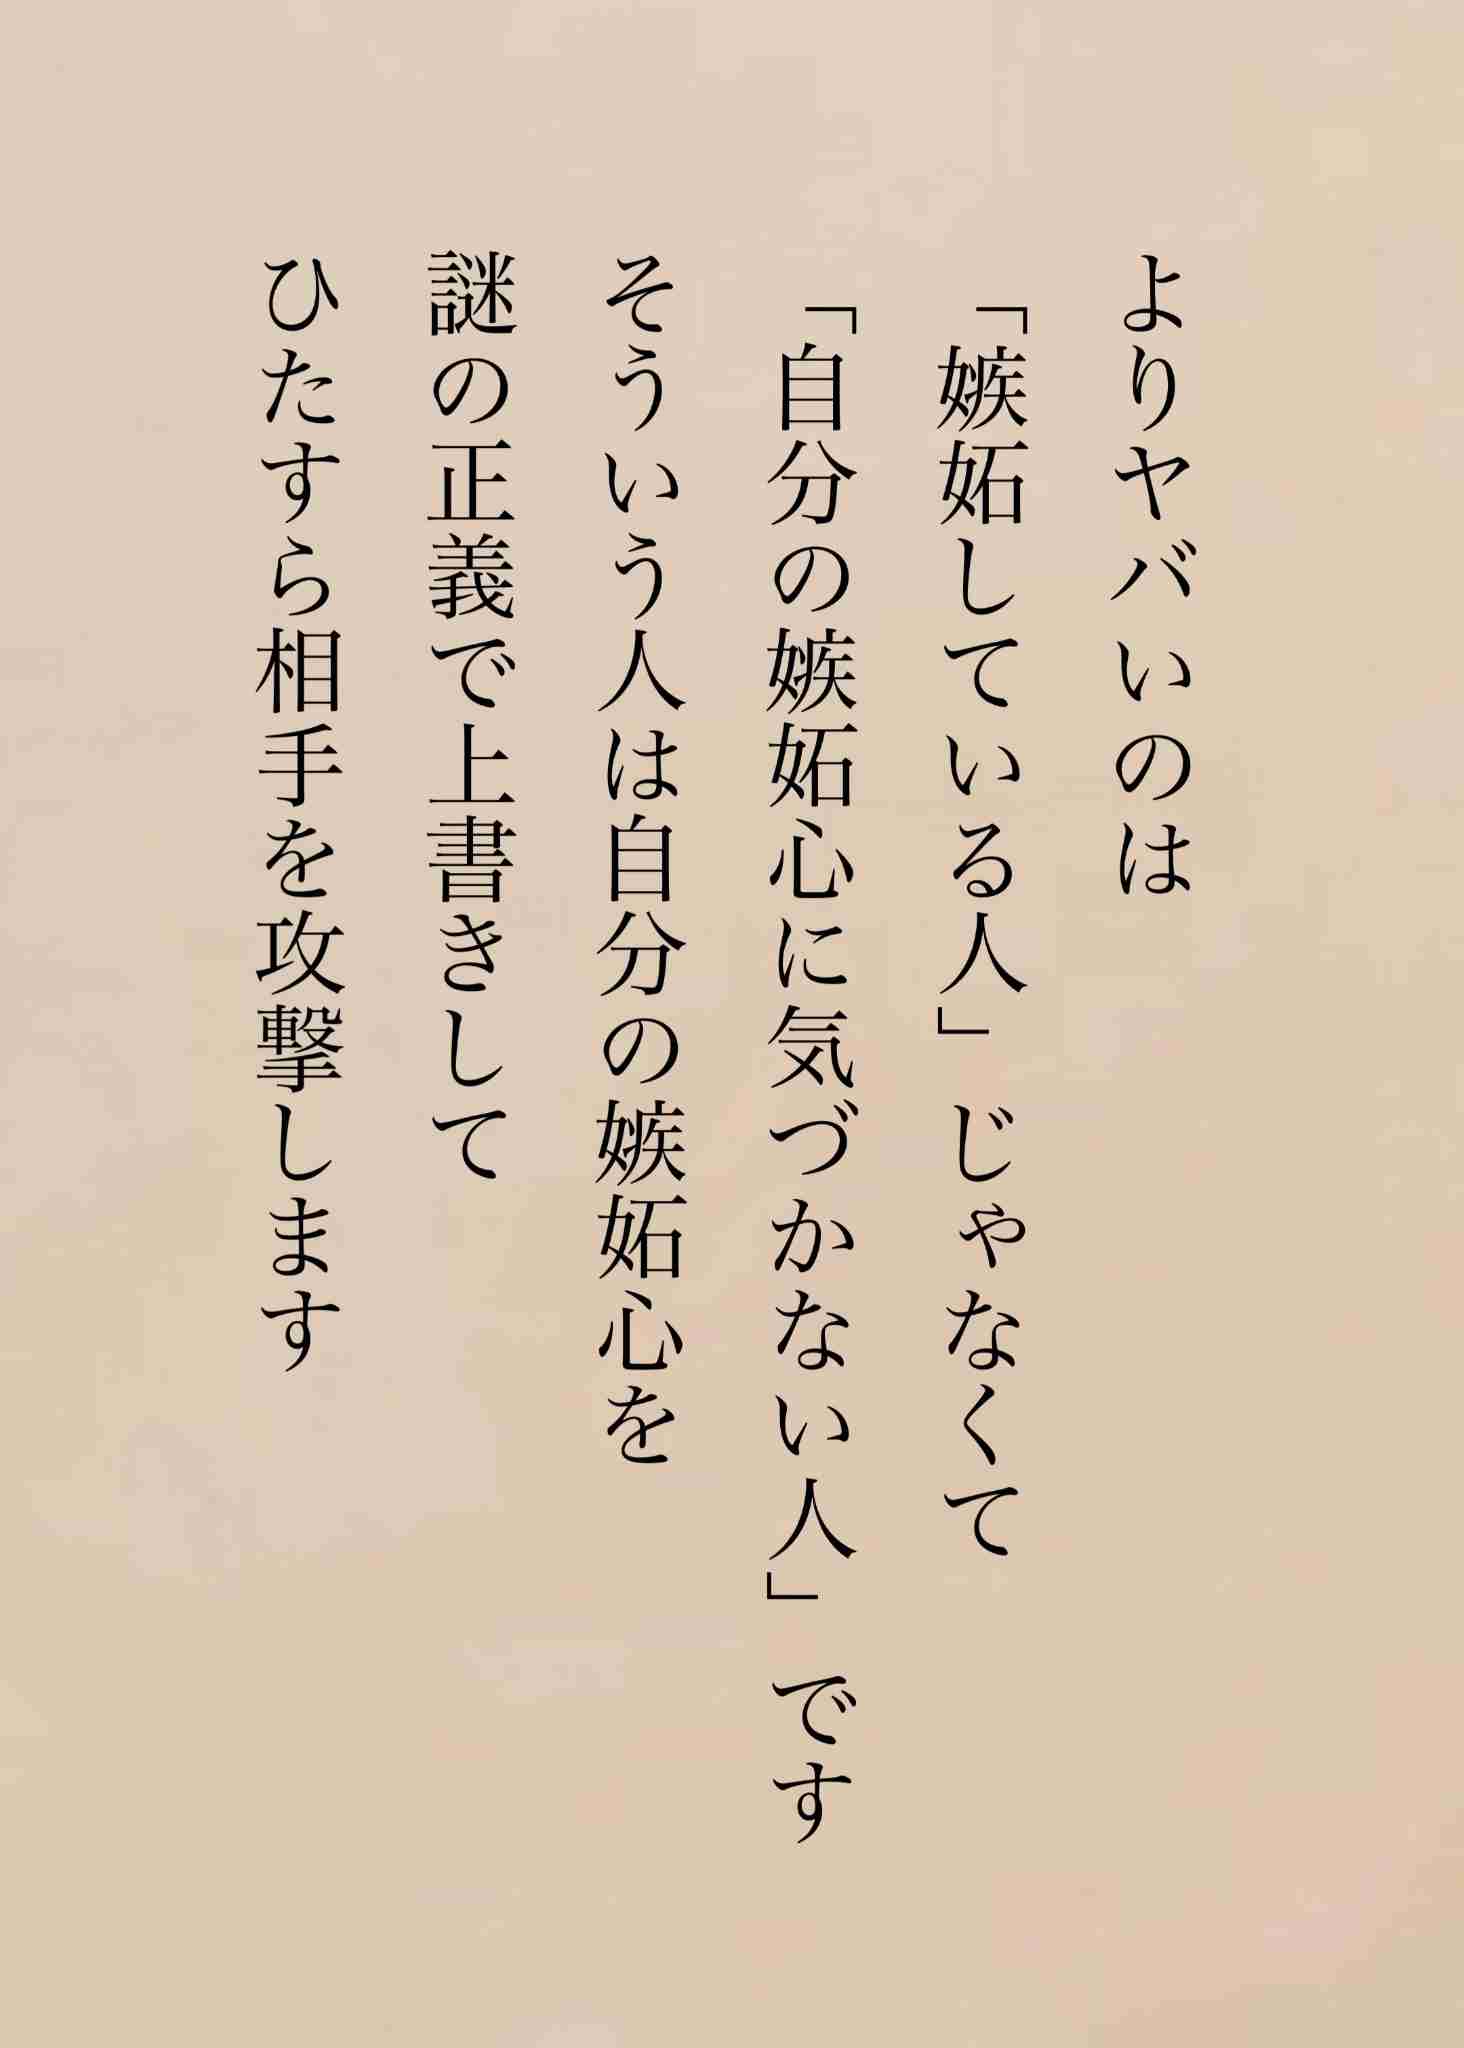 よりヤバいのは
「嫉妬している人」じゃなくて
「自分の嫉妬心に気づかない人」です
そういう人は自分の嫉妬心を
謎の正義で上書きして
ひたすら相手を攻撃します